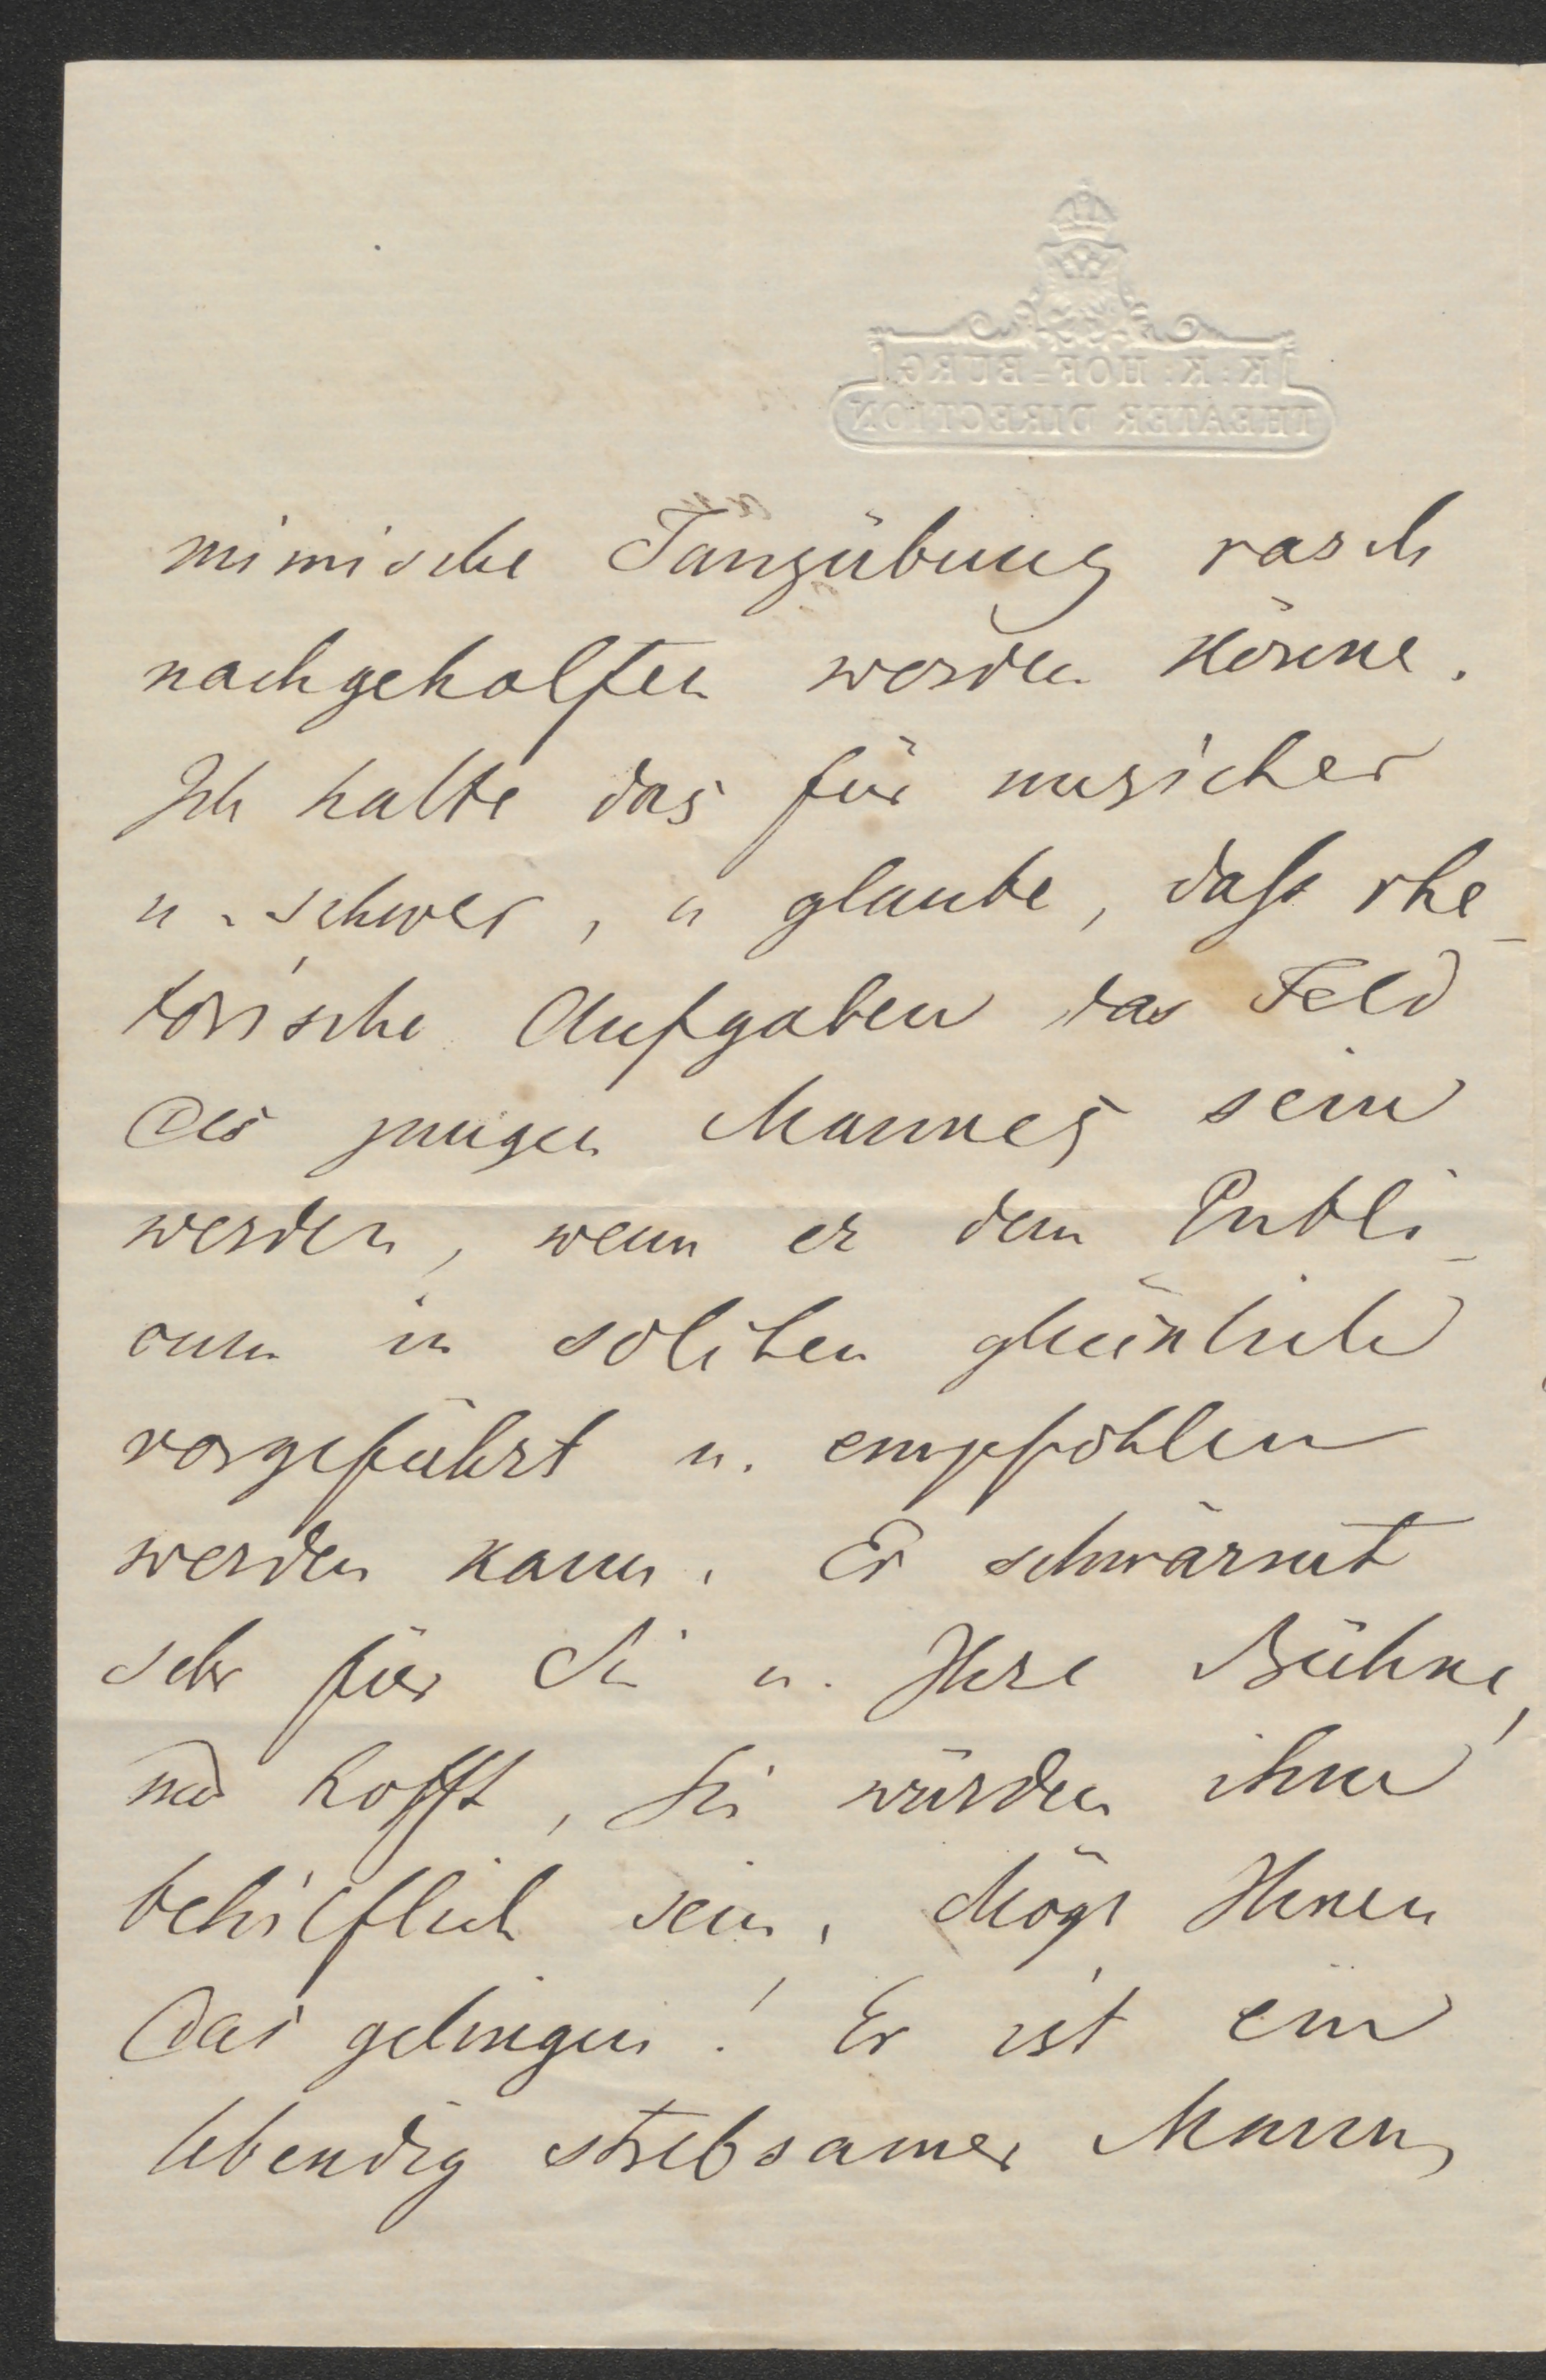 K: K: HOF-BURG
THEATER DIRECTION
mimische Tanzübung rasch
nachgeholfen werden könne.
Ich halte das für unsicher
u. schwer, u glaube, dass rhe-
torische Aufgaben das Feld
des jungen Mannes sein
werden, wenn er dem Publi-
cum in solchen glücklich
vorgeführt u. empfohlen
werden kann. Er schwärmt
sehr für Sie u. Ihre Bühne,
und hofft, Sie würden ihm
behilflich sein. Möge Ihnen
das gelingen! Er ist ein
lebendig strebsamer Mann,